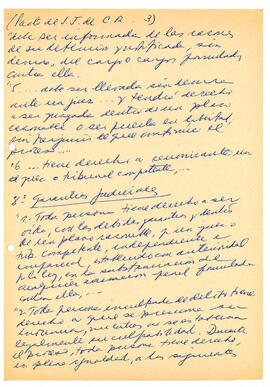 (Pacto de S.J. de C.R. 3)
debe ser informada de las razones
de su detención y notificada, sin
demora, del cargo o cargos formulados
contra ella.
"5. ... debe ser llevada sin demora
ante un juez ... y tendrá derecho
a ser juzgada dentro de un plazo
razonable o ser puesta en libertad,
sin perjuicio de que continúe el
proceso...
"6 ... tiene derecho a recurrir ante un
juez o tribunal competente, ...
8º Garantías Judiciales
"1. Toda persona tiene derecho a ser
oída, con las debidas garantías y dentro
de un plazo razonable, por un juez o
trib. competente, independiente e
imparcial, establecido con anterioridad
p/ ley, en la sustanciación de
cualquier acusación penal formulada
contra ella, ...
"2. Toda persona inculpada de delito tiene
derecho a que se presuma su
inocencia, mientras no se establezca
legalmente su culpabilidad. Durante
el proceso, toda persona tiene derecho,
en plena igualdad, a las siguientes